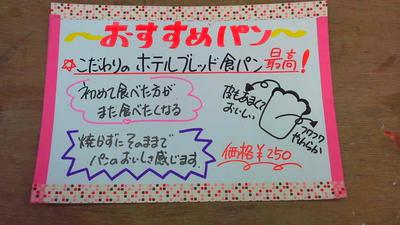 ～おすすめパン～
☆こだわりのホテルブレッド食パン最高!
初めて食べた方が
また食べたくなる
耳もあまくて
おいしい
フワフワ
やわらか
焼かずにそのままで
パンのおいしさ感じます。
価格¥250